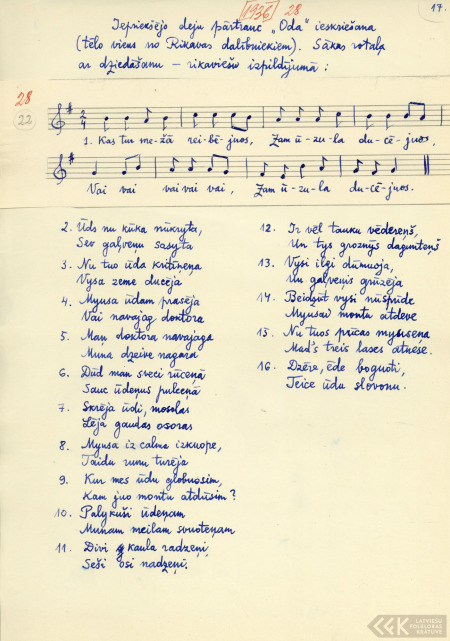 1936 28 17.
Iepriekšējo deju pārtrauc „Oda" ieskriešana
(tēlo viens no Rikavas dalībniekiem). Sākas rotaļa
ar dziedāšanu – rikaviešu izpildījumā :
28
22
2 4
1. Kas tur me-žā rei-bē-juos, Zam ū-zu-la du-cē-juos,
Vai vai vai vai vai, Zam ū-zu-la du-cē-juos.
2. Ūds nu kūka nūkryta,
Sev galveņu sasyta
3. Nu tuo ūda kritīneņa
Vysa zeme ducēja
4. Myusa ūdam prasēja
Vai navajag doktora
5. Man doktora navajaga
Muna dzeive nagara
6. Dūd man sveci rūceņā
Sauc ūdeņus pulceņā
7. Skrēja ūdi, mosolas
Lēja gaudas osoras
8. Myusa iz calma izkuope,
Taidu runu turēja
9. Kur mes ūdu globuosim,
Kam juo montu atdūsim?
10. Palykuši ūdeņam
Munam meilam svuoteņam
11. Divi kaula radzeņi,
Seši osi nadzeņi.
12. Ir vēl tauku vēdereņš,
Un tys groznys daguneņš
13. Vysi ilgi dūmuoja,
Un galveņis grūzēja
14. Beidzūt vysi nūsprīde
Myusai montu atdeve
15. Nu tuos prīcas myusisena
Mad's treis lases atnese.
16. Dzēre, ēde boguoti,
Teice ūdu slovonu.
LATVIEŠU
FOLKLORAS
KRĀTUVE